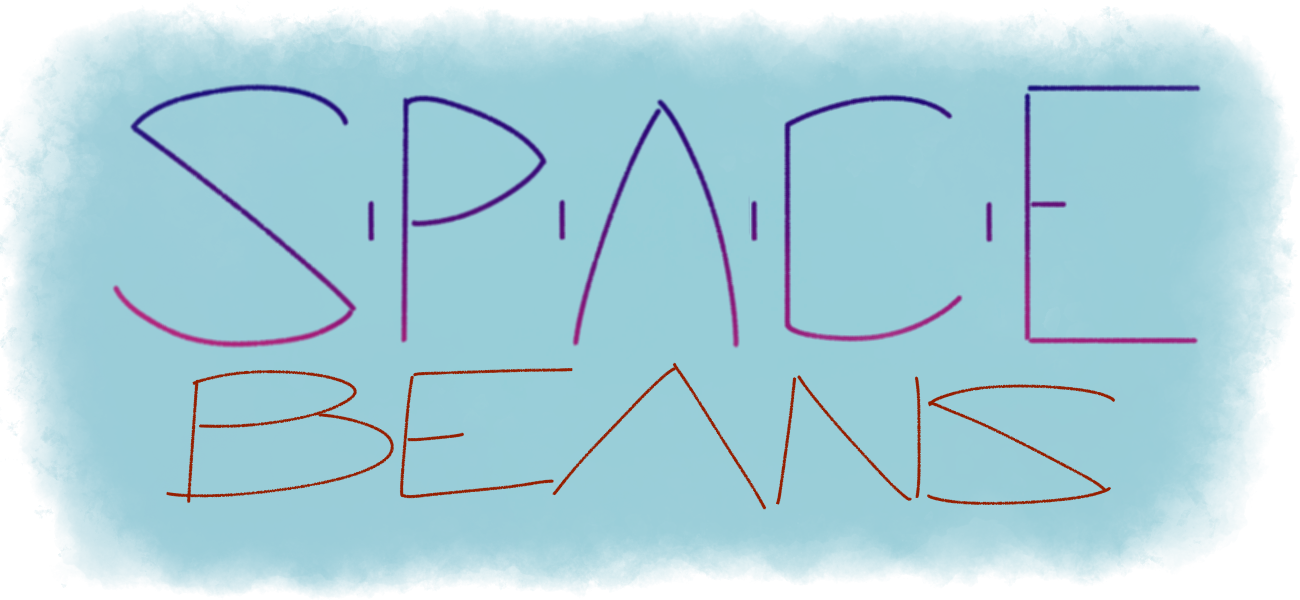 S'P'A'C'E
BEANS